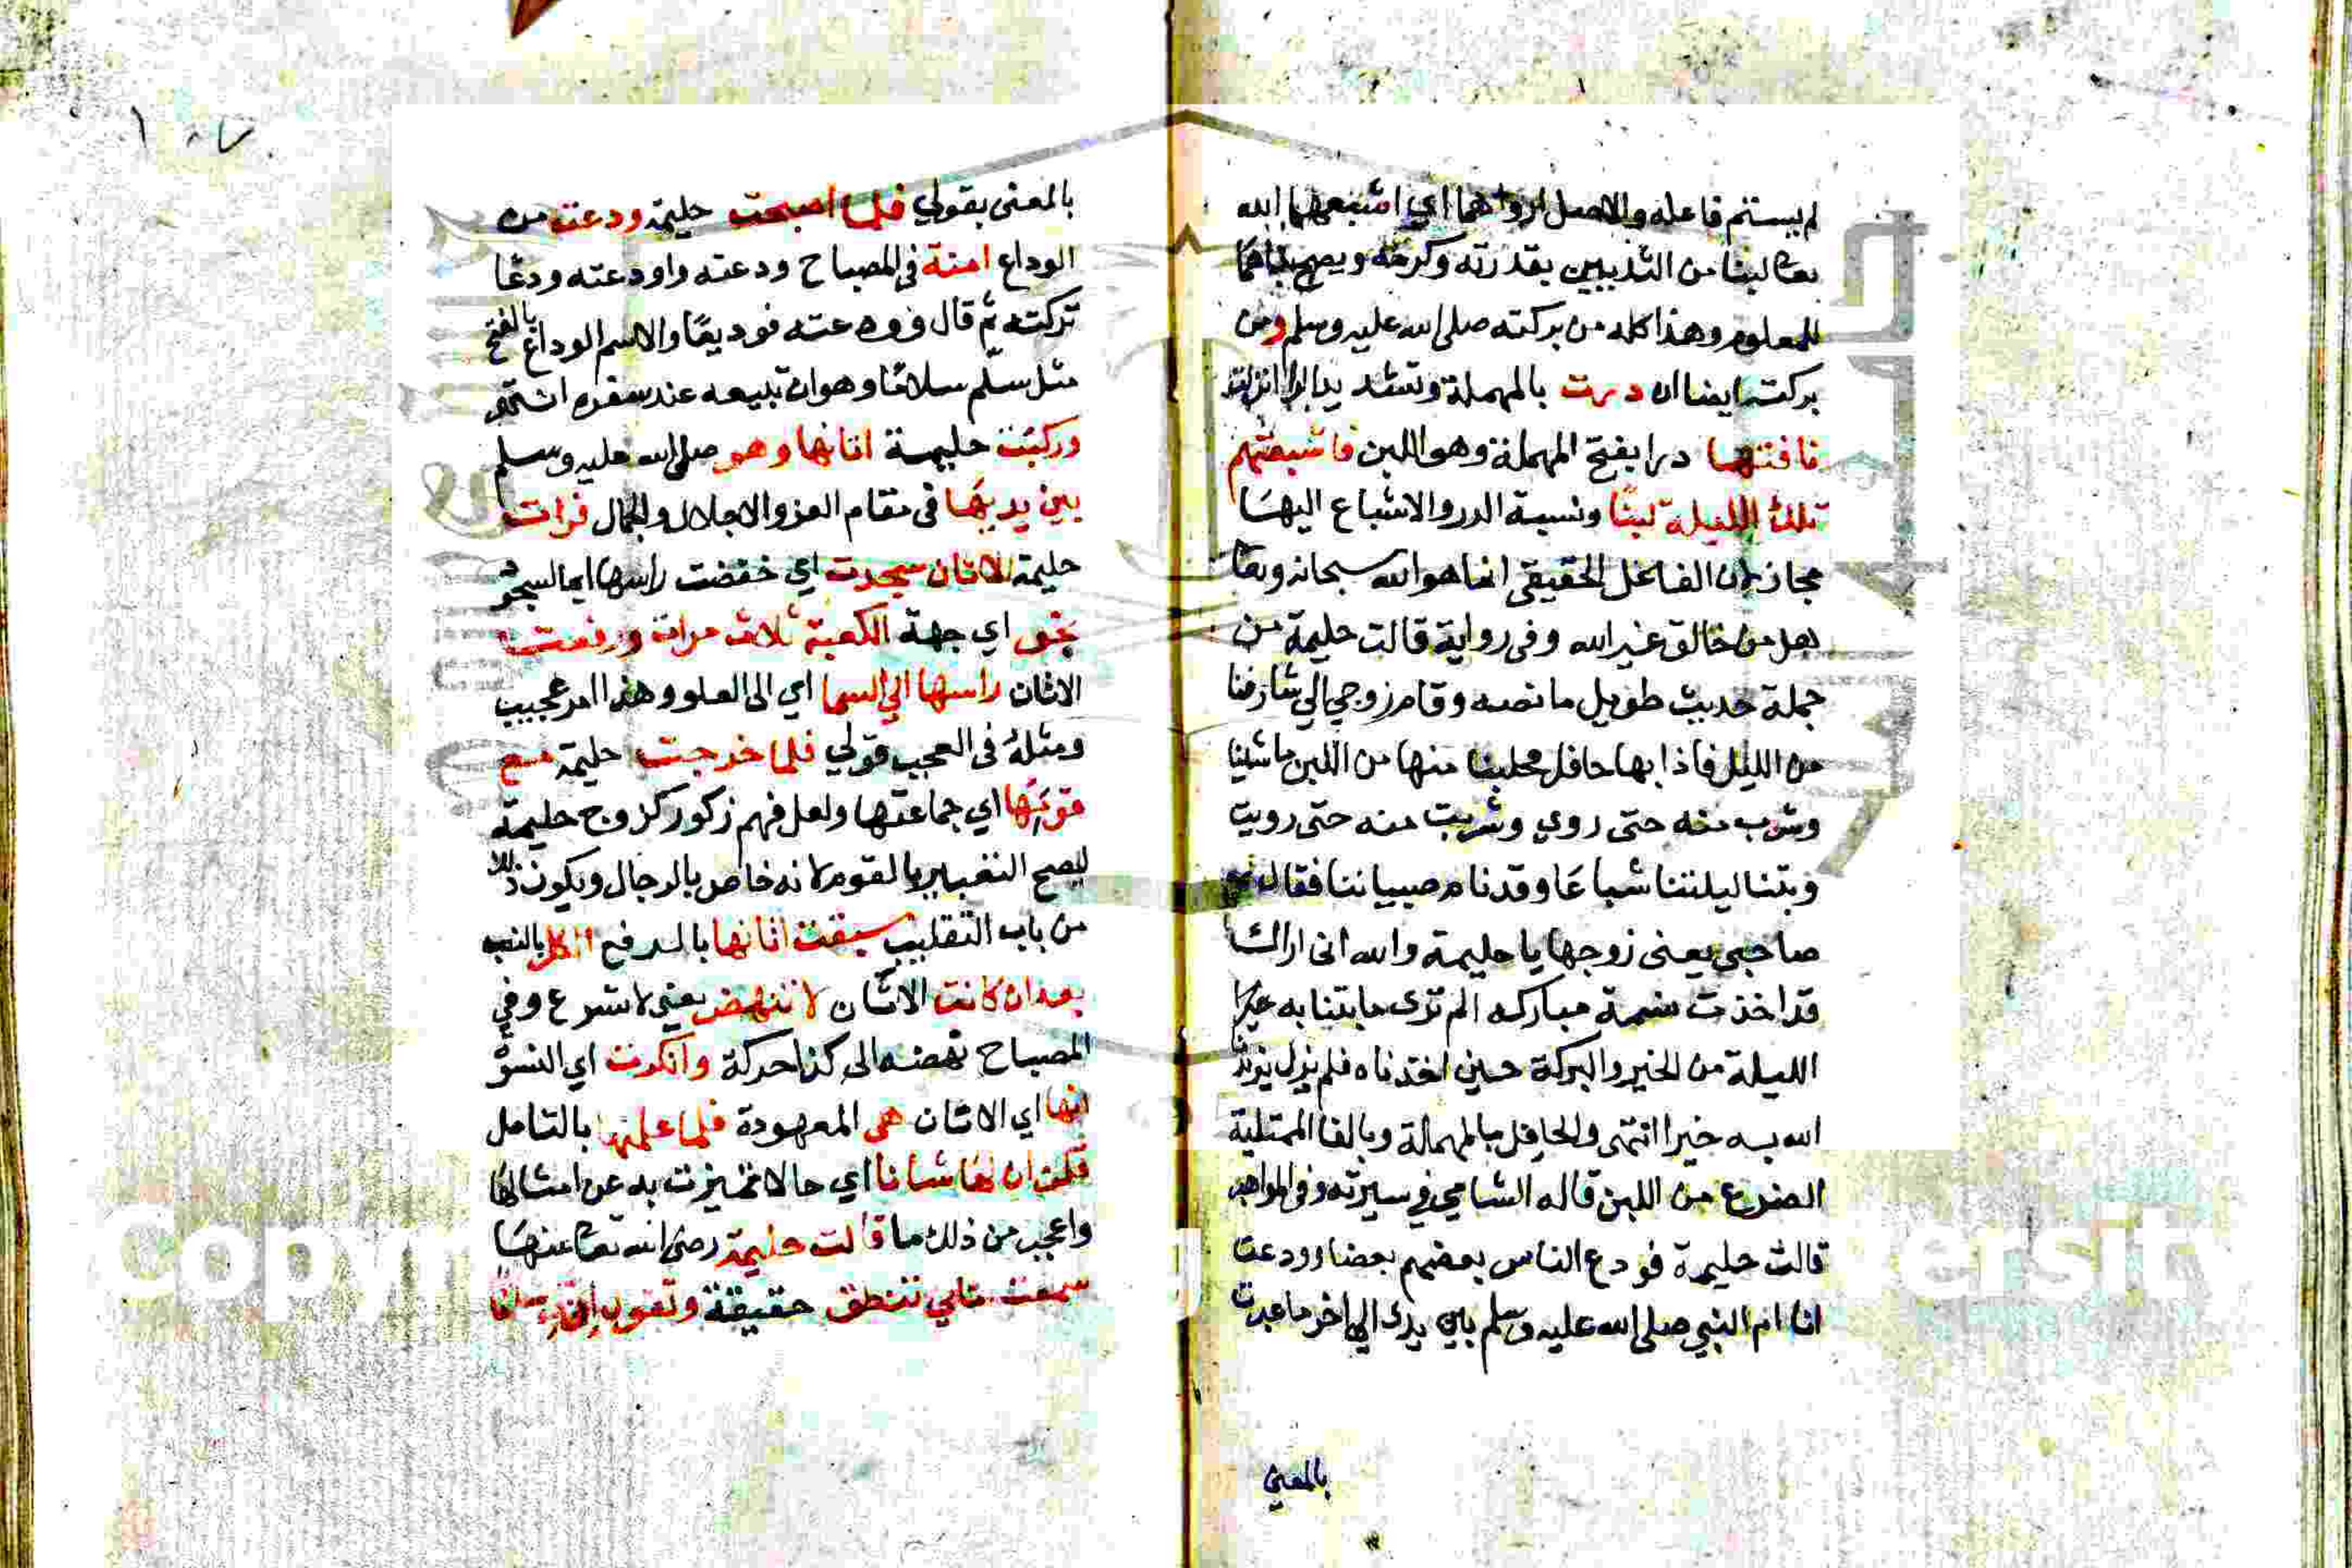 لم يستتم فاعله والاصل ارواهما اي اشبعهما الله
تعا لبنا من الثديين بقدرته وكرمه ويصح بناهما
للمعلوم وهذا كله من بركته صلى الله عليه وسلم ومن
بركته ايضا ان درت بالمهملة وتشديد الرا انزلت
ناقتها درا بفتح المهملة وهو اللبن فاشبعتهم
تلك الليلة لبنا ونسبة الدر والاشباع اليها
مجاز لان الفاعل الحقيقي انما هو الله سبحانه وتعا
هل من خالق غير الله وفى رواية قالت حليمة من
جملة حديث طويل ما نصه وقام زوجي الي شارفنا
من الليل فاذا بها حافل فحلبنا منها من اللبن ما شئنا
وشرب منه حتى روي وشربت منه حتى رويت
وبتنا ليلتنا شباعا وقد نام صبياننا فقال
صاحبى يعنى زوجها يا حليمة والله انى اراك
قد اخذت نسمة مباركه الم ترى ما بتنا به
الليلة من الخير والبركة حين اخذناه فلم يزل يزيدنا
الله به خيرا انتهى والحافل بالمهملة وبالفا الممتلية
الضرع من اللبن قاله الشامي في سيرته وفى المواهب
قالت حليمة فودع الناس بعضهم بعضا وودعت
انا ام النبي صلى الله عليه وسلم بين يدي الي اخر ما عبرت
بالمعني
بالمعنى بقولي فلما اصبحت حليمة ودعت من
الوداع امنة فى المصباح ودعته واودعته ودعا
تركته ثم قال وودعته توديعا والاسم الوداع بالفتح
مثل سلّم سلاما وهو ان تشيعه عند سفره انتهى
وركبت حليمة اتانها وهو صلى الله عليه وسلم
بين يديها فى مقام العز والاجلال والجمال فرات
حليمة الاتان سجدت اي خفضت راسها ايما السجود
نحو اي جهة الكعبة ثلاث مرات ورفعت
الاتان راسها الي السما اي الى العلو وهذا امر عجيب
ومثله فى العجب قولي فلما خرجت حليمة مع
قومها اي جماعتها ولعل فيهم ذكور كزوج حليمة
ليصح التعبير بالقوم لانه خاص بالرجال ويكون ذلك
من باب التغليب سبقت اتانها بالرفع الكل بالنصب
بعد ان كانت الاتان لا تنهض يعنى لا تسرع وفي
المصباح نهضه الى كذا حركة وانكرت اي النسوة
انها اي الاتان هى المعهودة فلما علمنها بالتامل
قلن ان لها شانا اي حالا تميزت به عن امثالها
واعجب من ذلك ما قالت حليمة رضى الله تعا عنها
سمعت اتاني تنطق حقيقة وتقول ان لي شانا